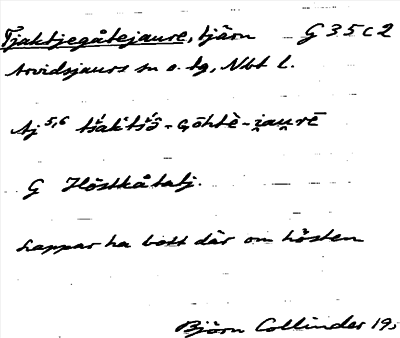 Tjaktjegåtejaure, tjärn G 35 c 2
Arvidsjaurs sn o. tg, Nbt l.
Aj 5,6 tśaktśō̂-gōhtē-i̯au̯rē
G Höstkåtatj.
Lappar ha bott där om hösten
Björn Collinder 19